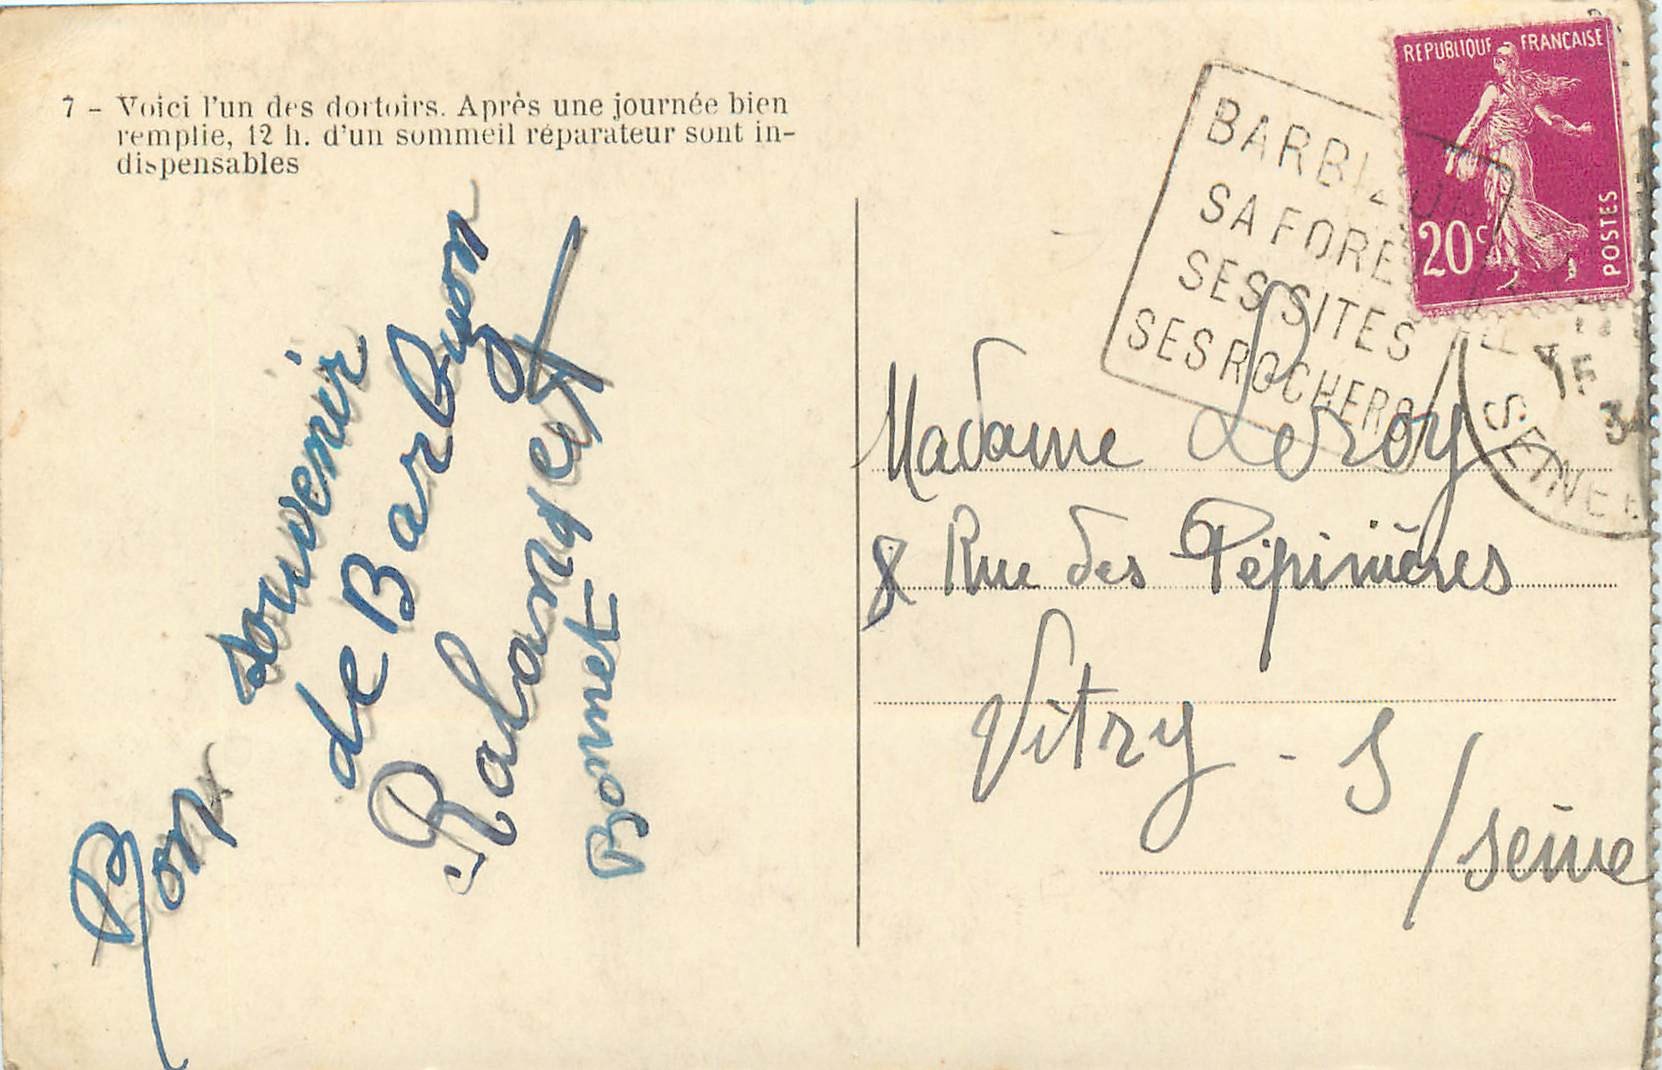 7 - Voici l'un des dortoirs. Après une journée bien
remplie, 12 h. d'un sommeil réparateur sont in-
dispensables
Bon souvenir
de Barbizon
et
Bonnet
BARBIZON
SA FORE
SES SITES
SES ROCHERS
REPUBLIQUE FRANÇAISE
20c
POSTES
34
SEINE E
Madame Leroy
8 Rue des Pépinières
Vitry - S
/Seine